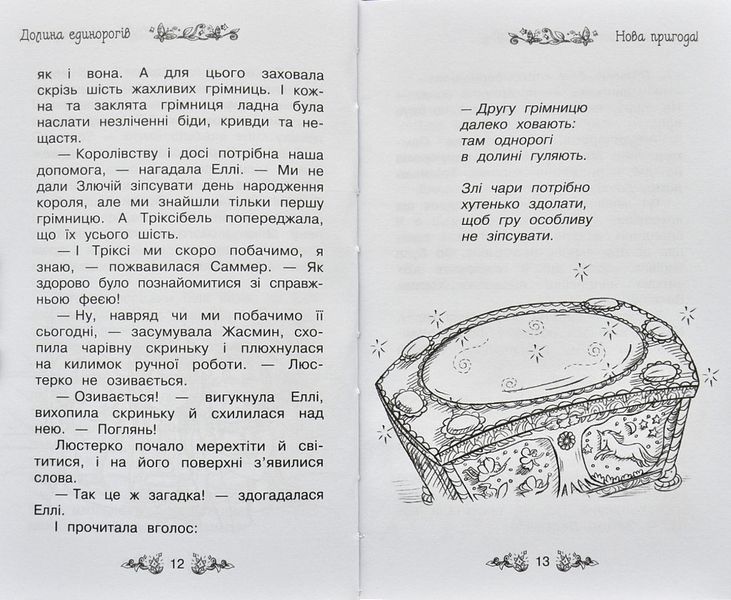 Долина єдинорогів
як і вона. А для цього заховала
скрізь шість жахливих грімниць. І кож-
на та заклята грімниця ладна була
наслати незліченні біди, кривди та не-
щастя.
— Королівству і досі потрібна наша
допомога, — нагадала Еллі. — Ми не
дали Злючій зіпсувати день народження
короля, але ми знайшли тільки першу
грімницю. А Тріксібель попереджала,
що їх усього шість.
— І Тріксі ми скоро побачимо, я
знаю, — пожвавилася Саммер. — Як
здорово було познайомитися зі справж-
ньою феєю!
— Ну, навряд чи ми побачимо її
сьогодні, — засумувала Жасмин, схо-
пила чарівну скриньку і плюхнулася
на килимок ручної роботи. — Люс-
терко не озивається.
— Озивається! — вигукнула Еллі,
вихопила скриньку й схилилася над
нею. — Поглянь!
Люстерко почало мерехтіти й сві-
титися, і на його поверхні з’явилися
слова.
— Так це ж загадка! — здогадалася
Еллі.
І прочитала вголос:
12
Нова пригода!
— Другу грімницю
далеко ховають:
там однорогі
в долині гуляють.
Злі чари потрібно
хутенько здолати,
щоб гру особливу
не зіпсувати.
13